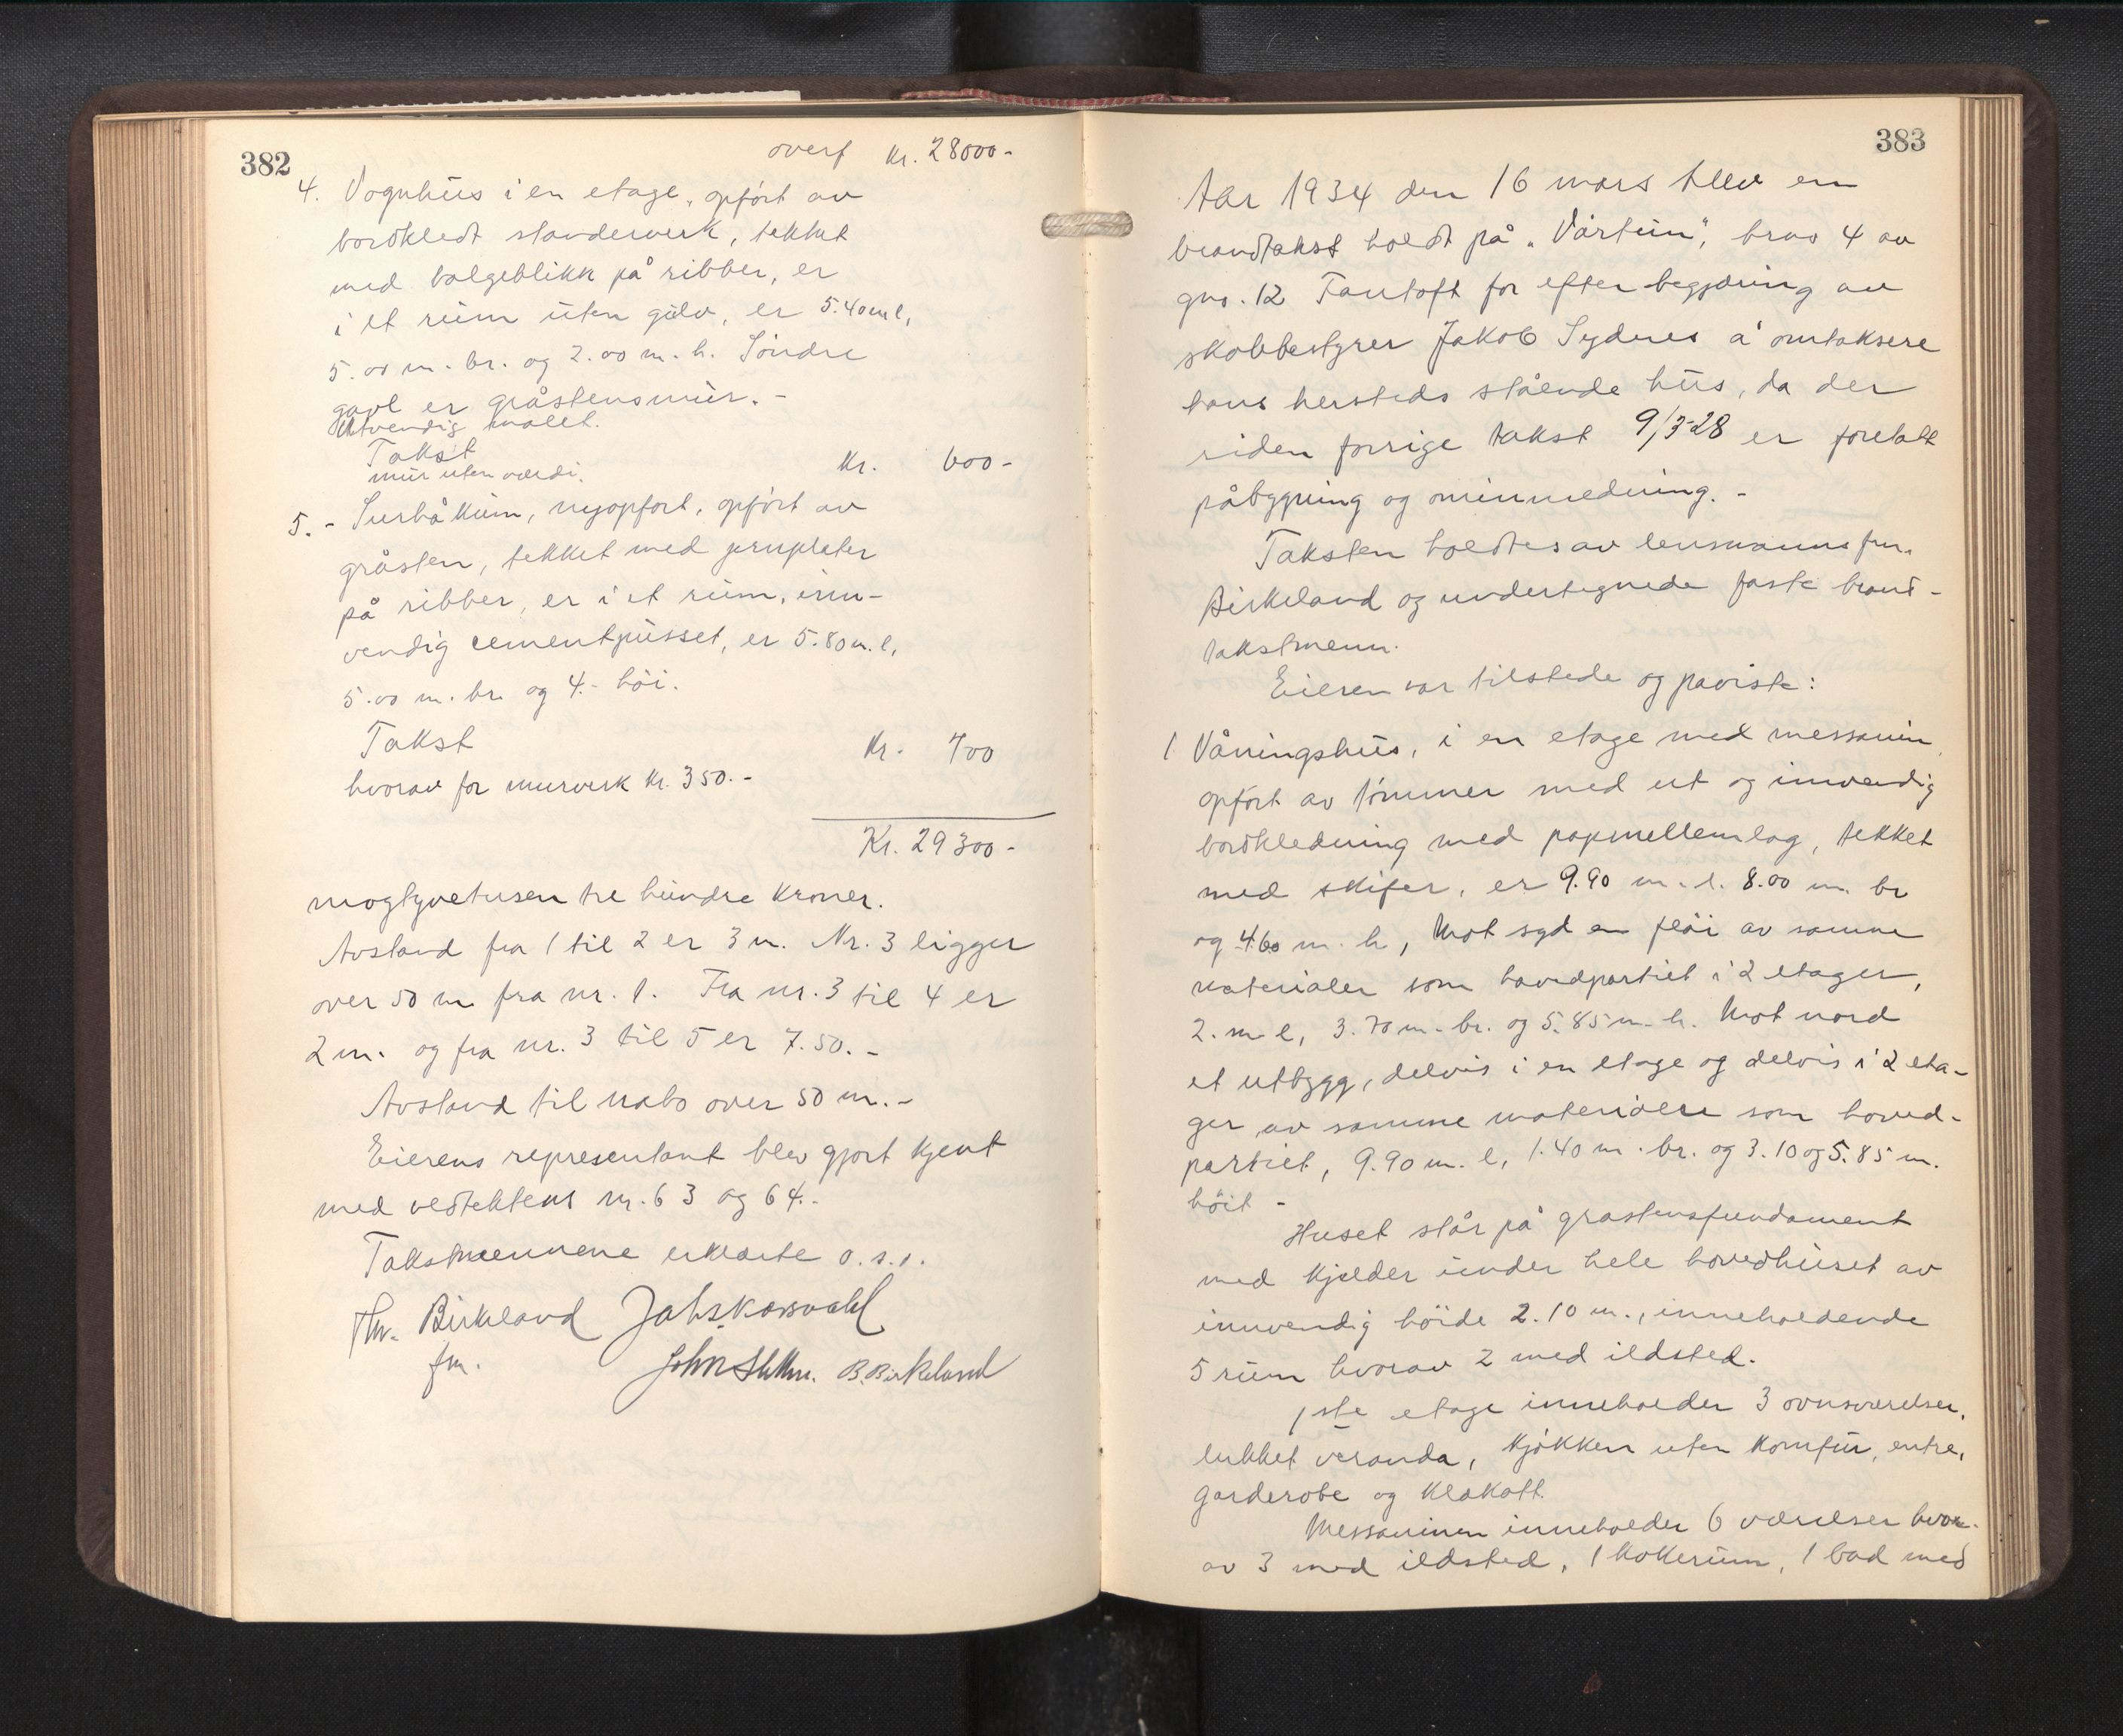 382
overf kr. 28000-
4. Vognhus i en etage, opført av
bordkledt standerverk, tekket
med bølgeblikk på ribber, er
i et rum uten gulv, er 5.40 m l,
5.00 m. br. og 2.00 m. h. Søndre
gavl er gråstensmur. -
Utvendig malet.
Takst
mur uten værdi. Kr. 600-
5. - Surhåkum, nyopført, opført av
gråsten, tekket med jernplater
på ribber, er i et rum, inn-
vendig cementpusset, er 5.80 m. l,
5.00 m. br. og 4.- höi.
Takst Kr. 700
hvorav for murverk kr. 350.-
Kr. 29300-
niogtyvetusen tre hundre kroner.
Avstand fra 1 til 2 er 3 m. Nr. 3 ligger
over 50 m fra nr. 1. Fra nr. 3 til 4 er
2 m. og fra nr. 3 til 5 er 7.50. -
Avstand til nabo over 50 m. -
Eierens representant blev gjort kjent
med vedtektens nr. 63 og 64.-
Takstmennene erklærte o. s. v.
Birkeland
fm.
B. Birkeland
383
Aar 1934 den 16 mars blev en
brandtakst holdt på "Vårtun", brno 4 av
gno. 12 Fantoft for efter begjæring av
skolebestyrer Jakob Sydnes å omtaksere
hans hersteds stående hus, da der
siden forrige takst 9/3-28 er foretatt
påbygning og ominnredning. -
Taksten holdtes av lensmannsfm.
Birkeland og undertegnede faste brand-
takstmenn.
Eieren var tilstede og påviste:
1 Våningshus, i en etage med messanin,
opført av tømmer med ut og innvendig
bordkledning med papmellemlag, tekket
med skifer, er 9.90 m. l. 8.00 m. br
og 4.60 m. h, Mot syd en fløi av samme
materialer som hovedpartiet i 2 etager,
2. m l, 3.70 m. br. og 5.85 m. h. Mot nord
et utbygg, delvis i en etage og delvis i 2 eta-
ger av samme materialer som hoved-
partiet, 9.90 m. l, 1.40 m. br. og 3.10 og 5.85 m.
höit -
Huset står på gråstensfundament
med kjelder under hele hovedhuset av
innvendig höide 2.10 m., inneholdende
5 rum hvorav 2 med ildsted.
1ste etage inneholder 3 ovnsværelser,
lukket veranda, kjøkken uten komfur, entre,
garderobe og klokott.
Messaninen inneholder 6 værelser hvor-
av 3 med ildsted, 1 kokerum, 1 bad med